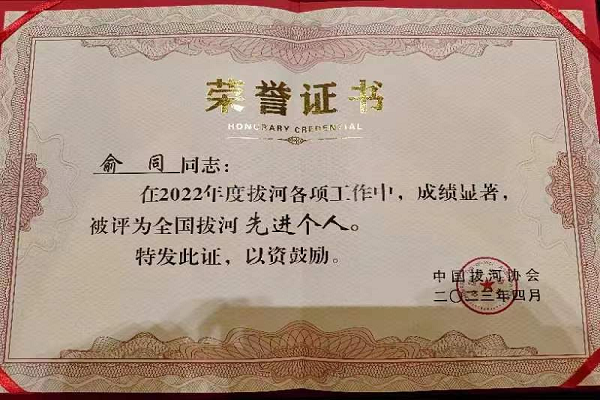 荣誉证书
HONORARY CREDENTIAL
俞同同志：
在2022年度拔河各项工作中，成绩显著，
被评为全国拔河先进个人。
特发此证，以资鼓励。
中国拔河协会
二〇二三年四月